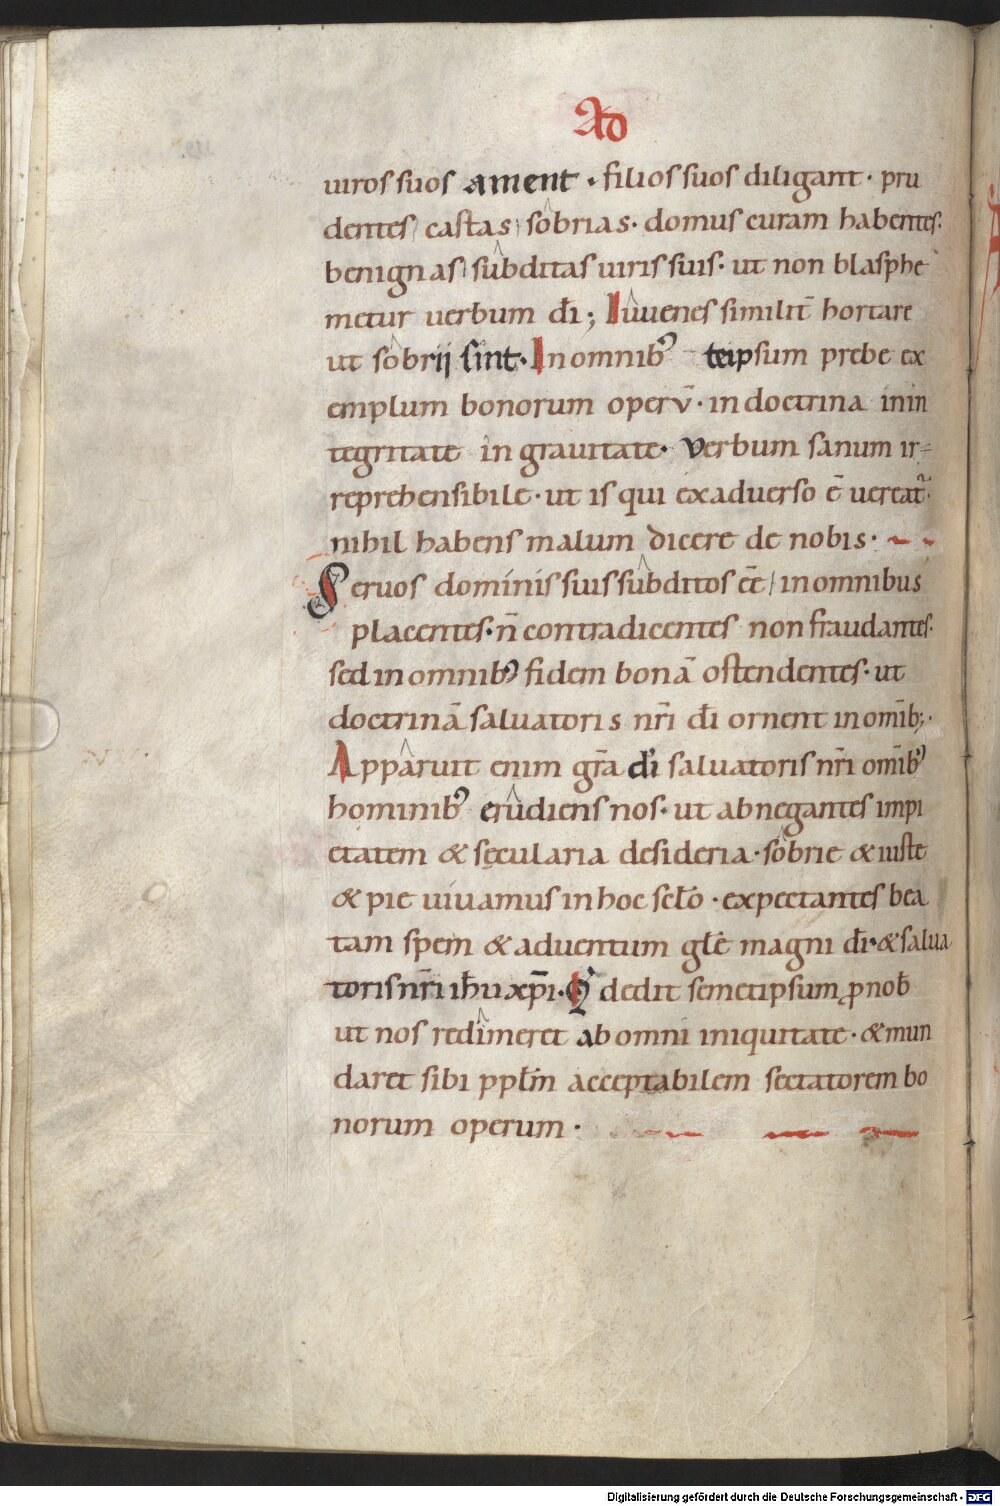 AD
uiros suos ament · filios suos diligant · pru
dentes / castas / sobrias · domus curam habentes ·
benignas / subditas uiris suis · ut non blasphe
metur uerbum dı̄ ; Iuuenes similit̄ hortare
ut sobrij sint · In omnibꝰ teipsum prebe ex
emplum bonorum operū · in doctrina in in
tegritate in grauitate · verbum sanum ir-
reprehensibile · ut is qui ex aduerso ē uereat᷑ ·
nihil habens malum dicere de nobis ·
Seruos dominis suis subditos eē / in omnibus
placentes · n̄ contradicentes non fraudantes ·
sed in omnibꝰ fidem bonā ostendentes · ut
doctrinā saluatoris nr̄i dı̄ ornent in om̄ib; ·
Apparuit enim gr̄a dı̄ saluatoris nr̄i om̄ibꝰ
hominibꝰ erudiens nos · ut abnegantes impi
etatem & sęcularia desideria · sobrie & iuste
& pie uiuamus in hoc scło · expectantes bea
tam spem & aduentum głe magni dı̄ · & salua
toris nr̄i ih̄u xp̄i · Q̄ dedit semetipsum ꝓ nob̄
ut nos redimeret ab omni iniquitate · & mun
daret sibi ppłm acceptabilem sectatorem bo
norum operum ·
Digitalisierung gefördert durch die Deutsche Forschungsgemeinschaft - DFG